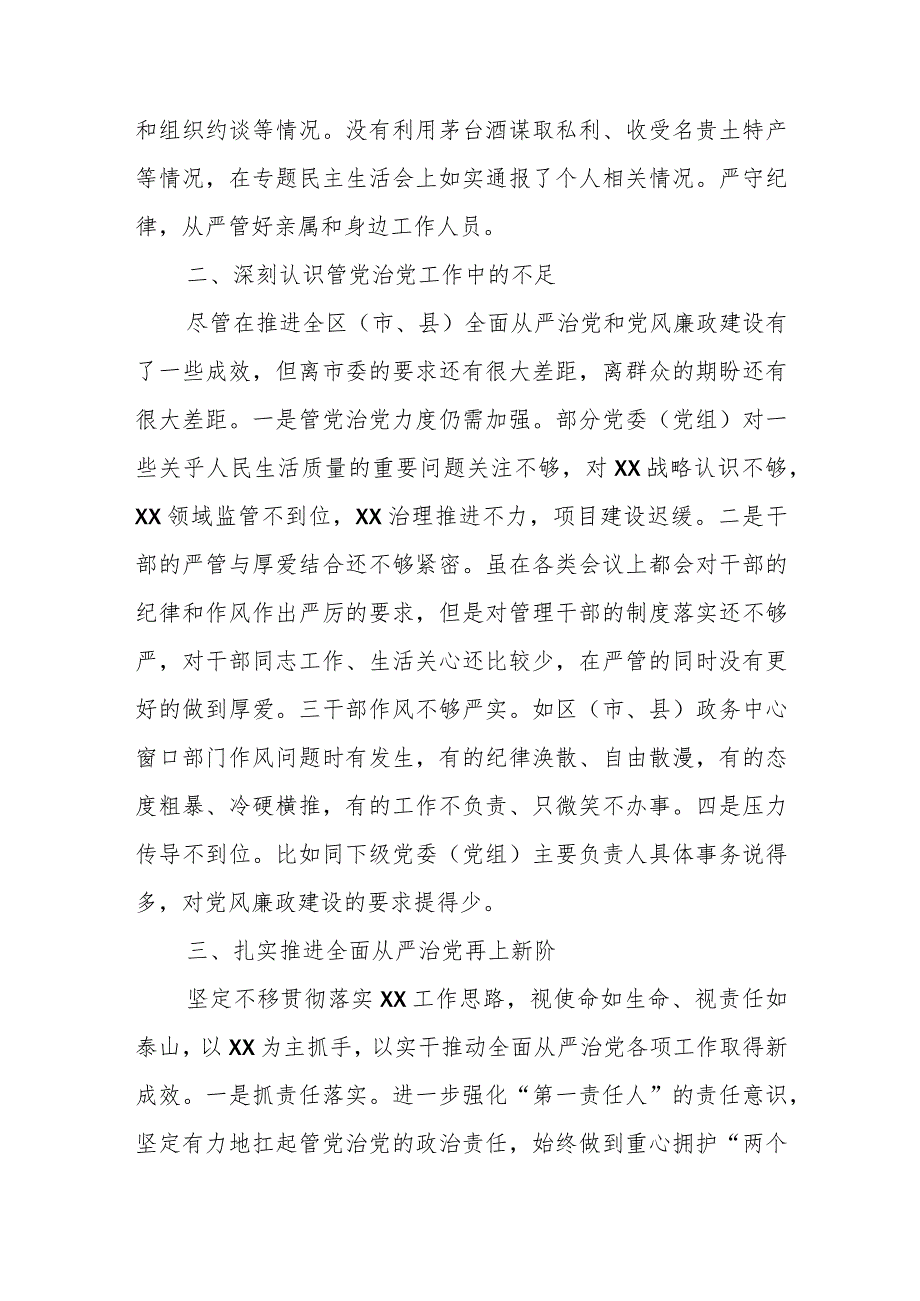 和组织约谈等情况。没有利用茅台酒谋取私利、收受名贵土特产
等情况，在专题民主生活会上如实通报了个人相关情况。严守纪
律，从严管好亲属和身边工作人员。
二、深刻认识管党治党工作中的不足
尽管在推进全区（市、县）全面从严治党和党风廉政建设有
了一些成效，但离市委的要求还有很大差距，离群众的期盼还有
很大差距。一是管党治党力度仍需加强。部分党委（党组）对一
些关乎人民生活质量的重要问题关注不够，对 XX 战略认识不够，
XX 领域监管不到位，XX 治理推进不力，项目建设迟缓。二是干
部的严管与厚爱结合还不够紧密。虽在各类会议上都会对干部的
纪律和作风作出严厉的要求，但是对管理干部的制度落实还不够
严，对干部同志工作、生活关心还比较少，在严管的同时没有更
好的做到厚爱。三干部作风不够严实。如区（市、县）政务中心
窗口部门作风问题时有发生，有的纪律涣散、自由散漫，有的态
度粗暴、冷硬横推，有的工作不负责、只微笑不办事。四是压力
传导不到位。比如同下级党委（党组）主要负责人具体事务说得
多，对党风廉政建设的要求提得少。
三、扎实推进全面从严治党再上新阶
坚定不移贯彻落实 XX 工作思路，视使命如生命、视责任如
泰山，以 XX 为主抓手，以实干推动全面从严治党各项工作取得新
成效。一是抓责任落实。进一步强化“第一责任人”的责任意识，
坚定有力地扛起管党治党的政治责任，始终做到重心拥护“两个